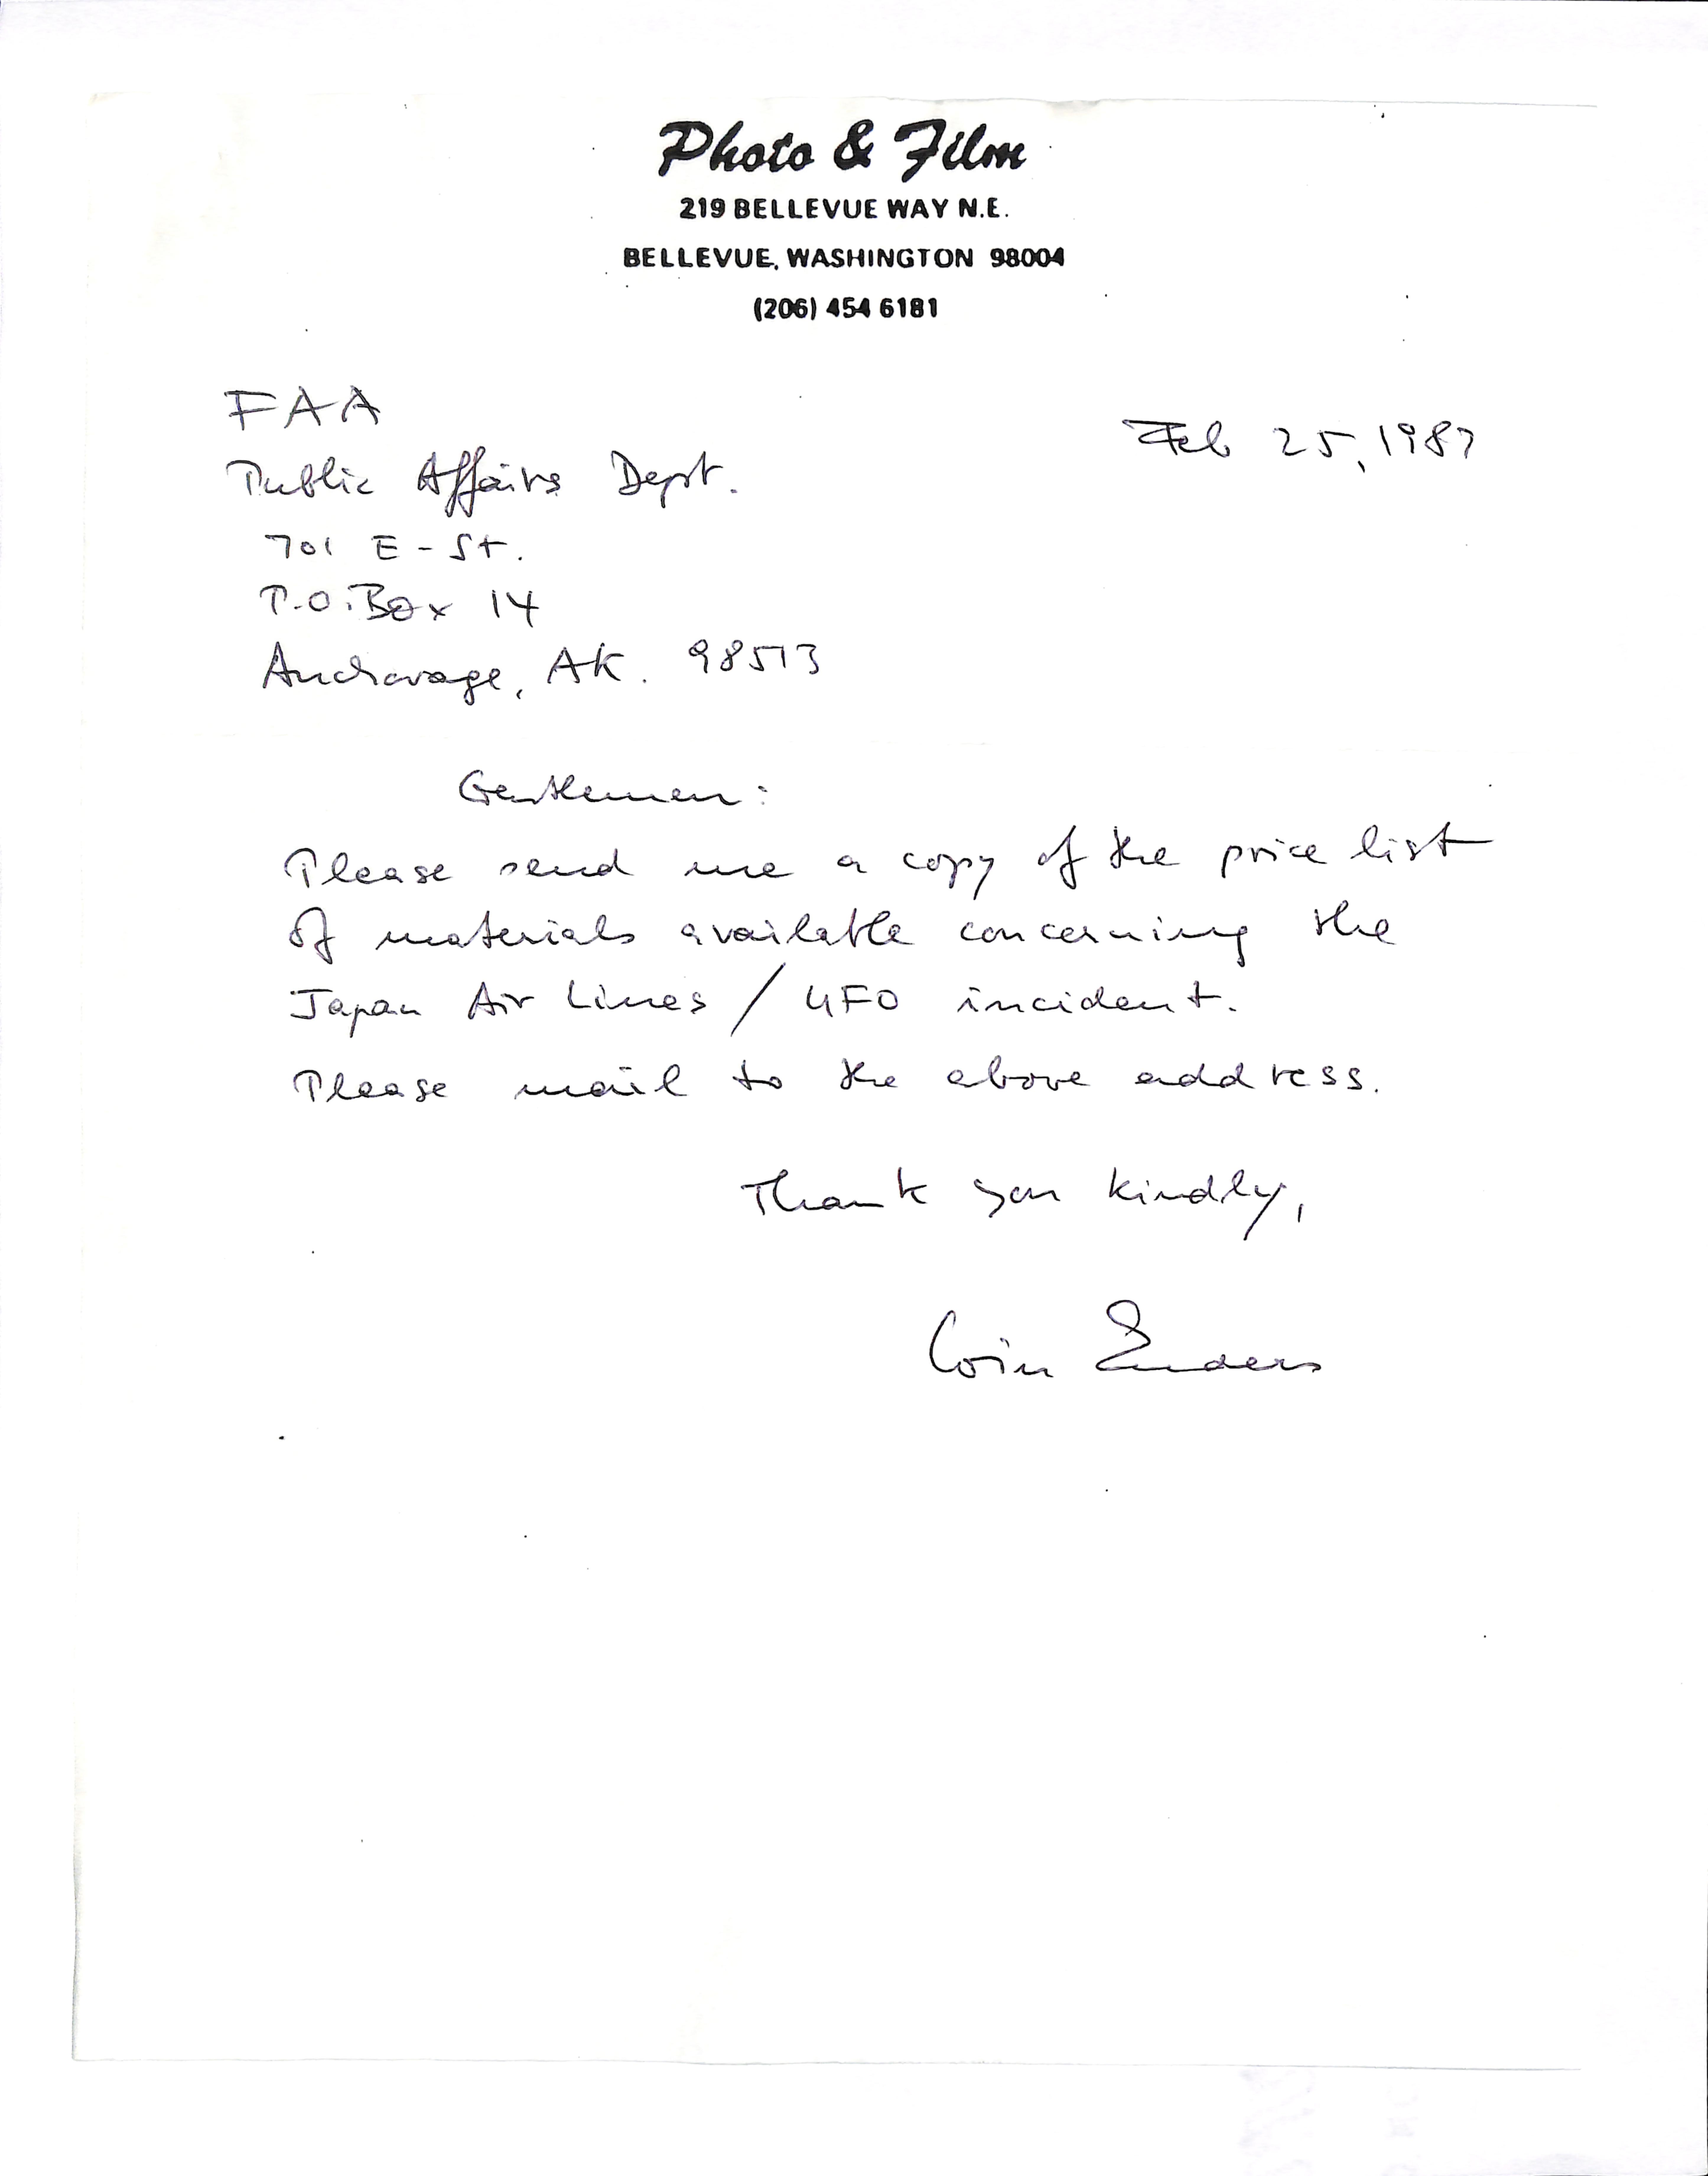 Photo & Film
219 BELLEVUE WAY N.E.
BELLEVUE, WASHINGTON 98004
(206) 454 6181
FAA
Feb 25, 1987
Public Affairs Dept.
701 E - St.
P.O. Box 14
Anchorage, AK. 98513
Gentlemen:
Please send me a copy of the price list
of materials available concerning the
Japan Air Lines / UFO incident.
Please mail to the above address.
Thank you kindly,
Enders